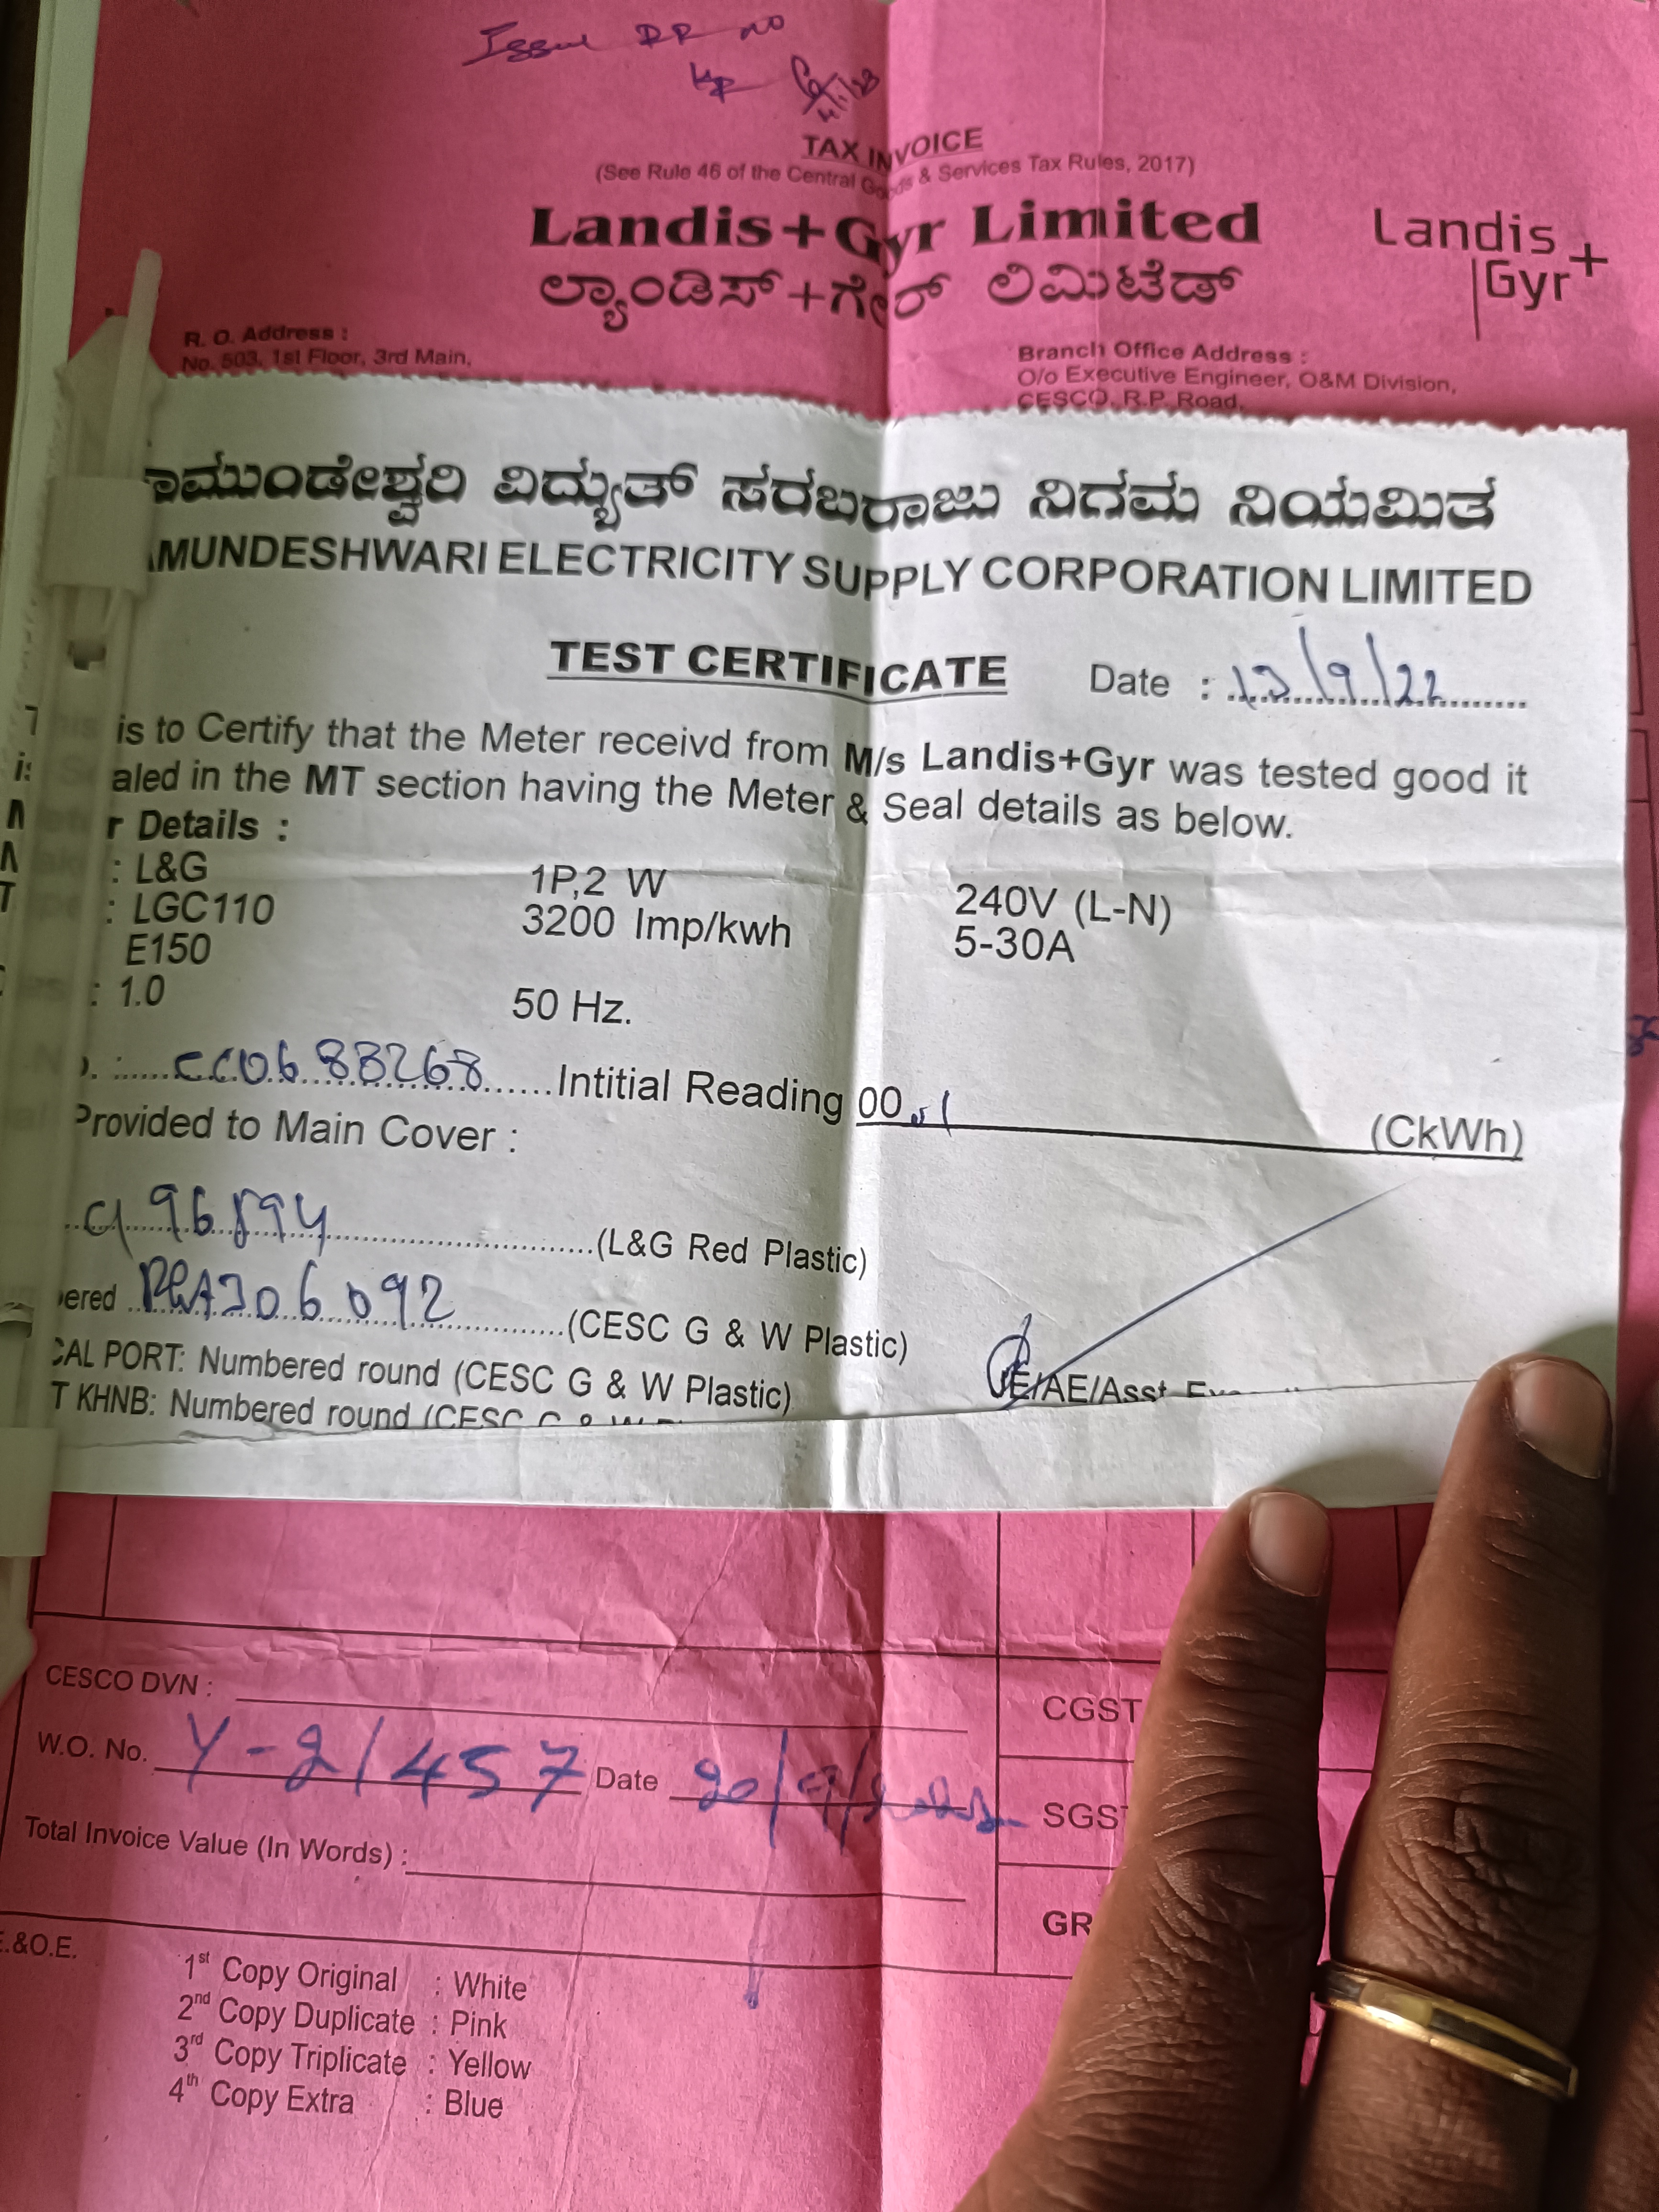 Issue RR no
4/1/23
TAX INVOICE
(See Rule 46 of the Central Goods & Services Tax Rules, 2017)
Landis+Gyr Limited
ಲ್ಯಾಂಡಿಸ್+ಗೇರ್ ಲಿಮಿಟೆಡ್
Landis
Gyr+
R. O. Address :
No. 503, 1st Floor, 3rd Main,
Branch Office Address :
O/o Executive Engineer, O&M Division,
CESCO, R.P. Road,
ಾಮುಂಡೇಶ್ವರಿ ವಿದ್ಯುತ್ ಸರಬರಾಜು ನಿಗಮ ನಿಯಮಿತ
AMUNDESHWARI ELECTRICITY SUPPLY CORPORATION LIMITED
TEST CERTIFICATE Date : 12/9/22
This is to Certify that the Meter receivd from M/s Landis+Gyr was tested good it
is Sealed in the MT section having the Meter & Seal details as below.
Meter Details :
: L&G 1P,2 W 240V (L-N)
: LGC110 3200 Imp/kwh 5-30A
E150
: 1.0 50 Hz.
CC0688268 Intitial Reading 00.1 (CkWh)
Provided to Main Cover :
96894 (L&G Red Plastic)
bered 06092 (CESC G & W Plastic)
CAL PORT: Numbered round (CESC G & W Plastic)
T KHNB: Numbered round (CESC G & W
JE/AE/Asst
CESCO DVN :
W.O. No. Y-21457 Date
Total Invoice Value (In Words) :
CGST
SGST
GR
E.&O.E.
1st Copy Original : White
2nd Copy Duplicate : Pink
3rd Copy Triplicate : Yellow
4th Copy Extra : Blue